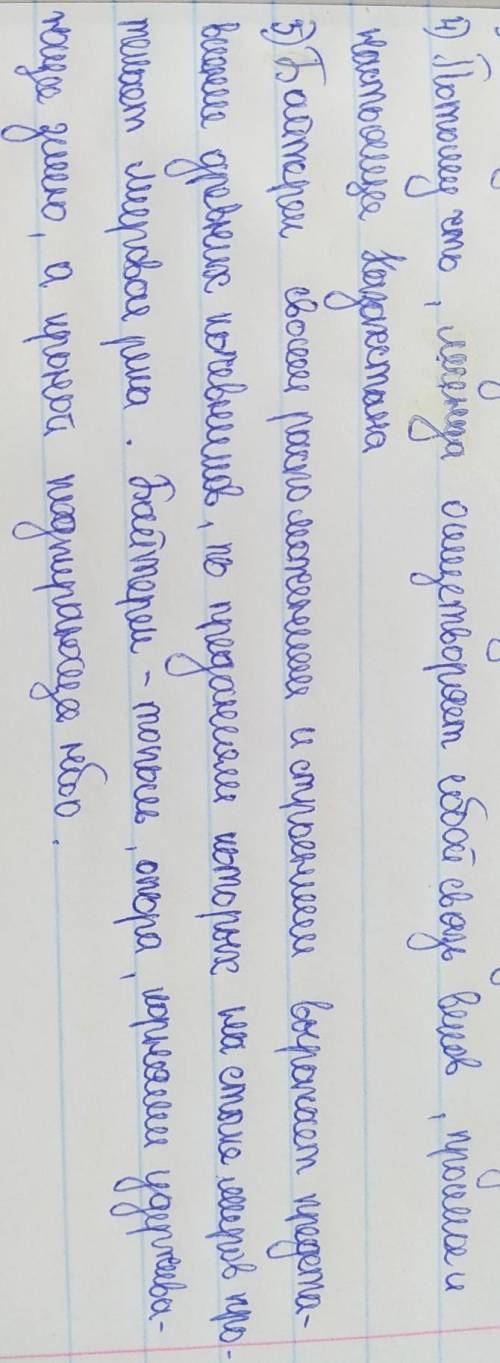 4) Потому что, легенда олицетворяет собой связь веков, прошлое и
настоящее Казахстана
5) Байтерек своим расположением и строением выражает предста-
вления древних кочевников, по преданиям которых на стыке миров про-
текает мировая река. Байтерек - тополь, опора, корнями удержива-
ющее землю, а кроной подпирающее небо.